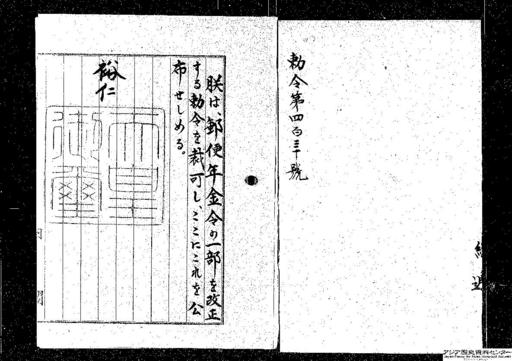 勅令第四百三十號
朕は、郵便年金令の一部を改正
する勅令を裁可し、ここにこれを公
布せしめる。
裕仁
天皇御璽
アジア歴史資料センター